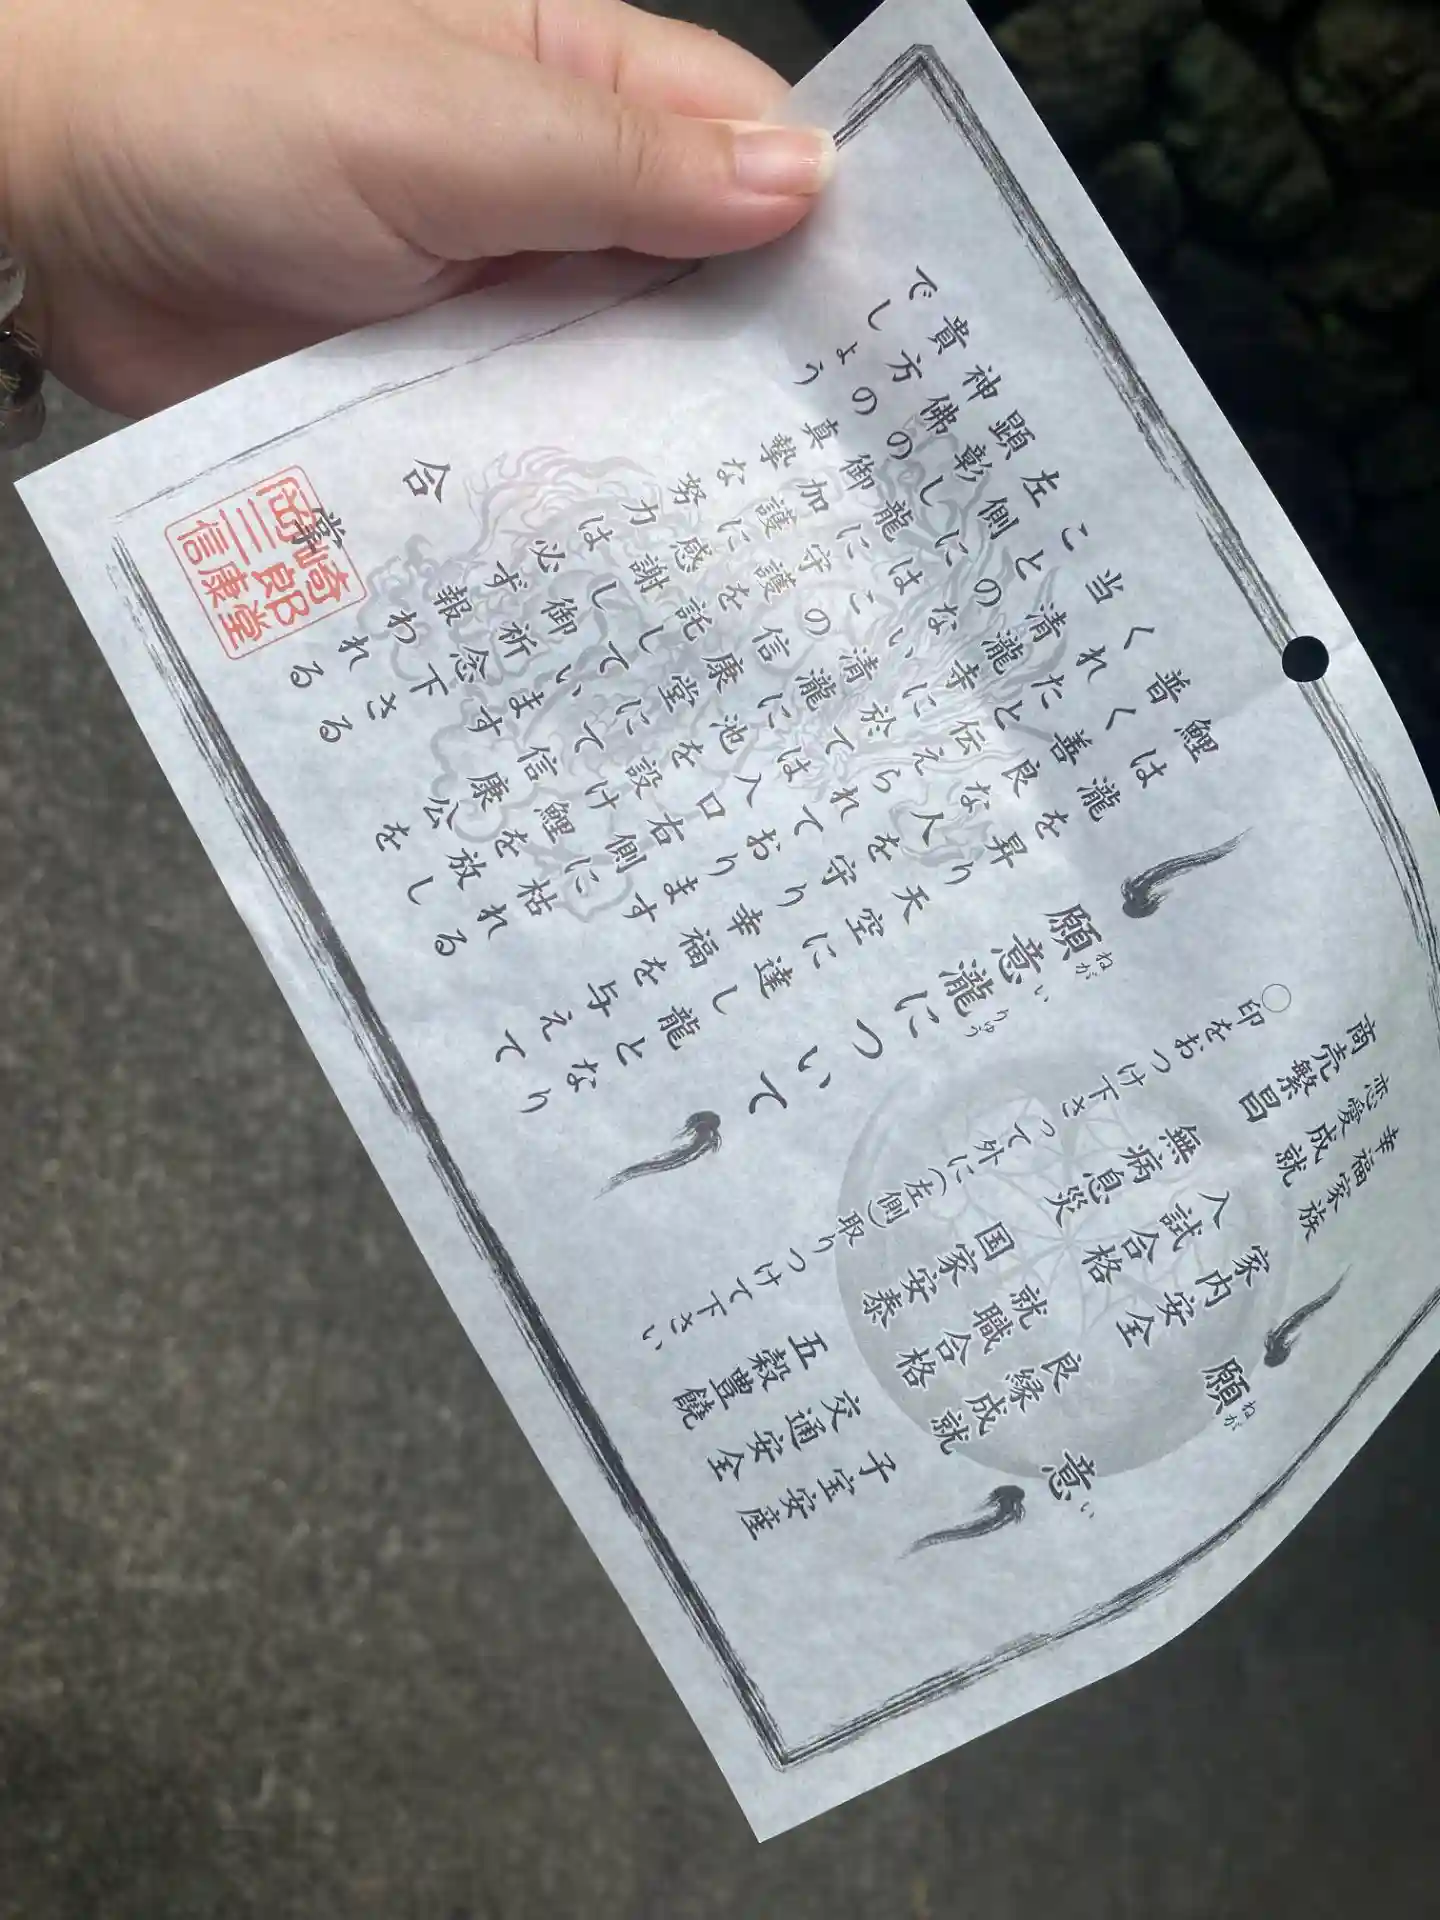 願意
ねがい
幸福家族
家内安全
良縁成就
子宝安産
恋愛成就
入試合格
就職合格
交通安全
商売繁昌
無病息災
国家安泰
五穀豊饒
○印をおつけ下さって外に(左側)取りつけて下さい
願意瀧について
ねがいりゅう
鯉は瀧を昇り天空に達し龍となり
普く善良な人を守り幸福を与えて
くれたと伝えられております
当清瀧寺に於ては入口右側に枯れる
ことのない清瀧に池を設け鯉を放し
左側にはこの信康堂にて信康公を
顕彰し龍に守護を託しています
神佛の御加護に感謝して御祈念下さる
貴方の真摯な努力は必ず報われる
でしょう
合掌
岡崎三郎信康堂